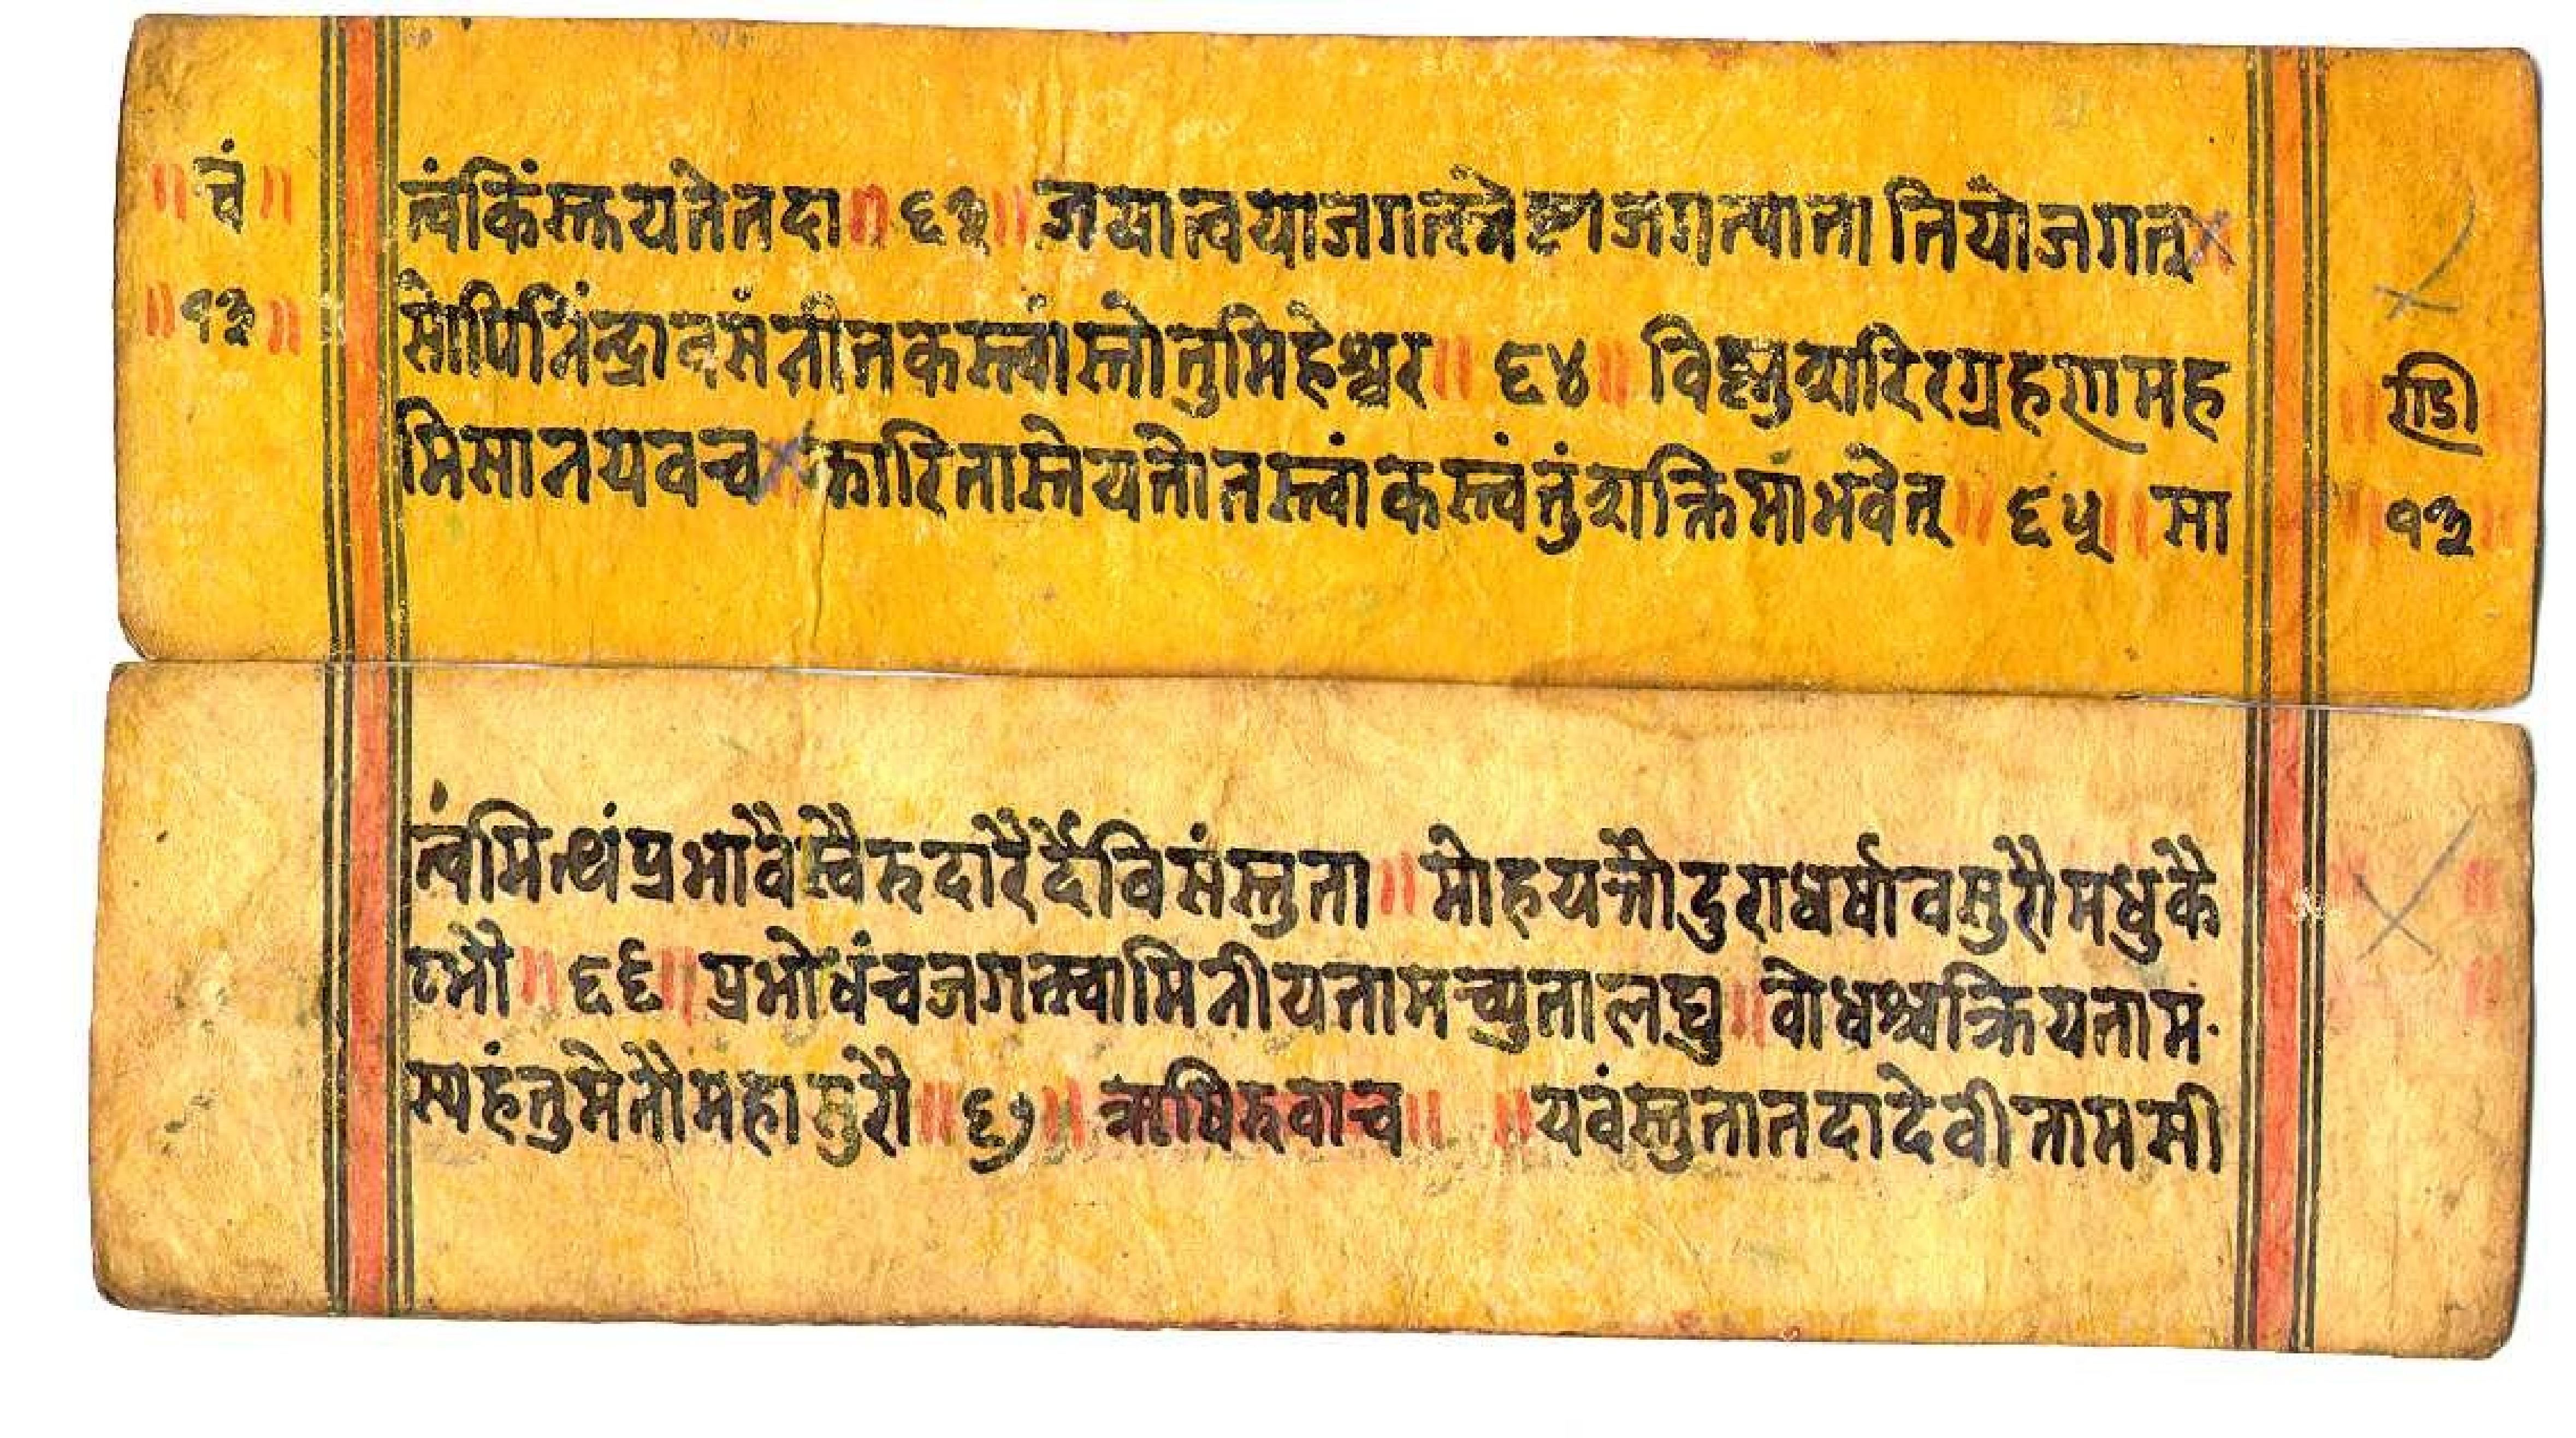 ॥ चं ॥
॥ १३ ॥
त्वंकिंस्तूयतेतदा॥ ६३ ॥ जयात्वयाजगत्स्त्रेष्टाजगत्पाता तियोजगत्
सोपिनिंन्द्रावसंनीतकस्त्वांस्तोतुमिहेश्वर॥ ६४॥ विष्णुशरिरग्रहणमह
मिसानयवच कारितास्तेयतोतस्त्वांकस्त्वंतुंशक्तिमांभवेत्॥ ६५॥ सा
॥ण्डी॥
॥ १३ ॥
त्वंमित्थंप्रभावैस्वैरुदारैर्देविसंस्तुता॥ मोहयत्तौदुराधर्षावसुरौमधुकै
टभौ॥ ६६॥ प्रभोधंचजगत्स्वामिनीयतामच्युतालघु॥ वोधश्चक्रियताम.
स्यहंतुमेतौमहासुरौ॥ ६७॥ ऋषिरुवाच॥ ॥यवंस्तुतातदादेवीतामसी